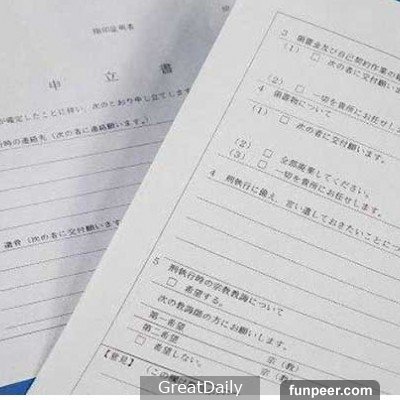 指印証明者
申立書
が確定したことに伴い、次のとおり申し立てします
時の連絡先（次の者に連絡願います。）
遺骨（次の者に交付願います
3 領置金及び自己契約作業の
（1）□ 次の者に交付願います。
（2）□ 一切を貴所にお任せします
4 領置物について
（1）□ 次の者に交付願います。
（2）□ 全部廃棄してください。
（3）□ 一切を貴所にお任せします。
4 刑執行に備え、言い遺しておきたいことにつ
5 刑執行時の宗教教誨について
□ 希望する。
次の教誨師の方にお願いします。
第一希望 宗（教）
第二希望 宗（教）
□ 希望しない。
【意見】
（この欄
GreatDaily
funpeer.com